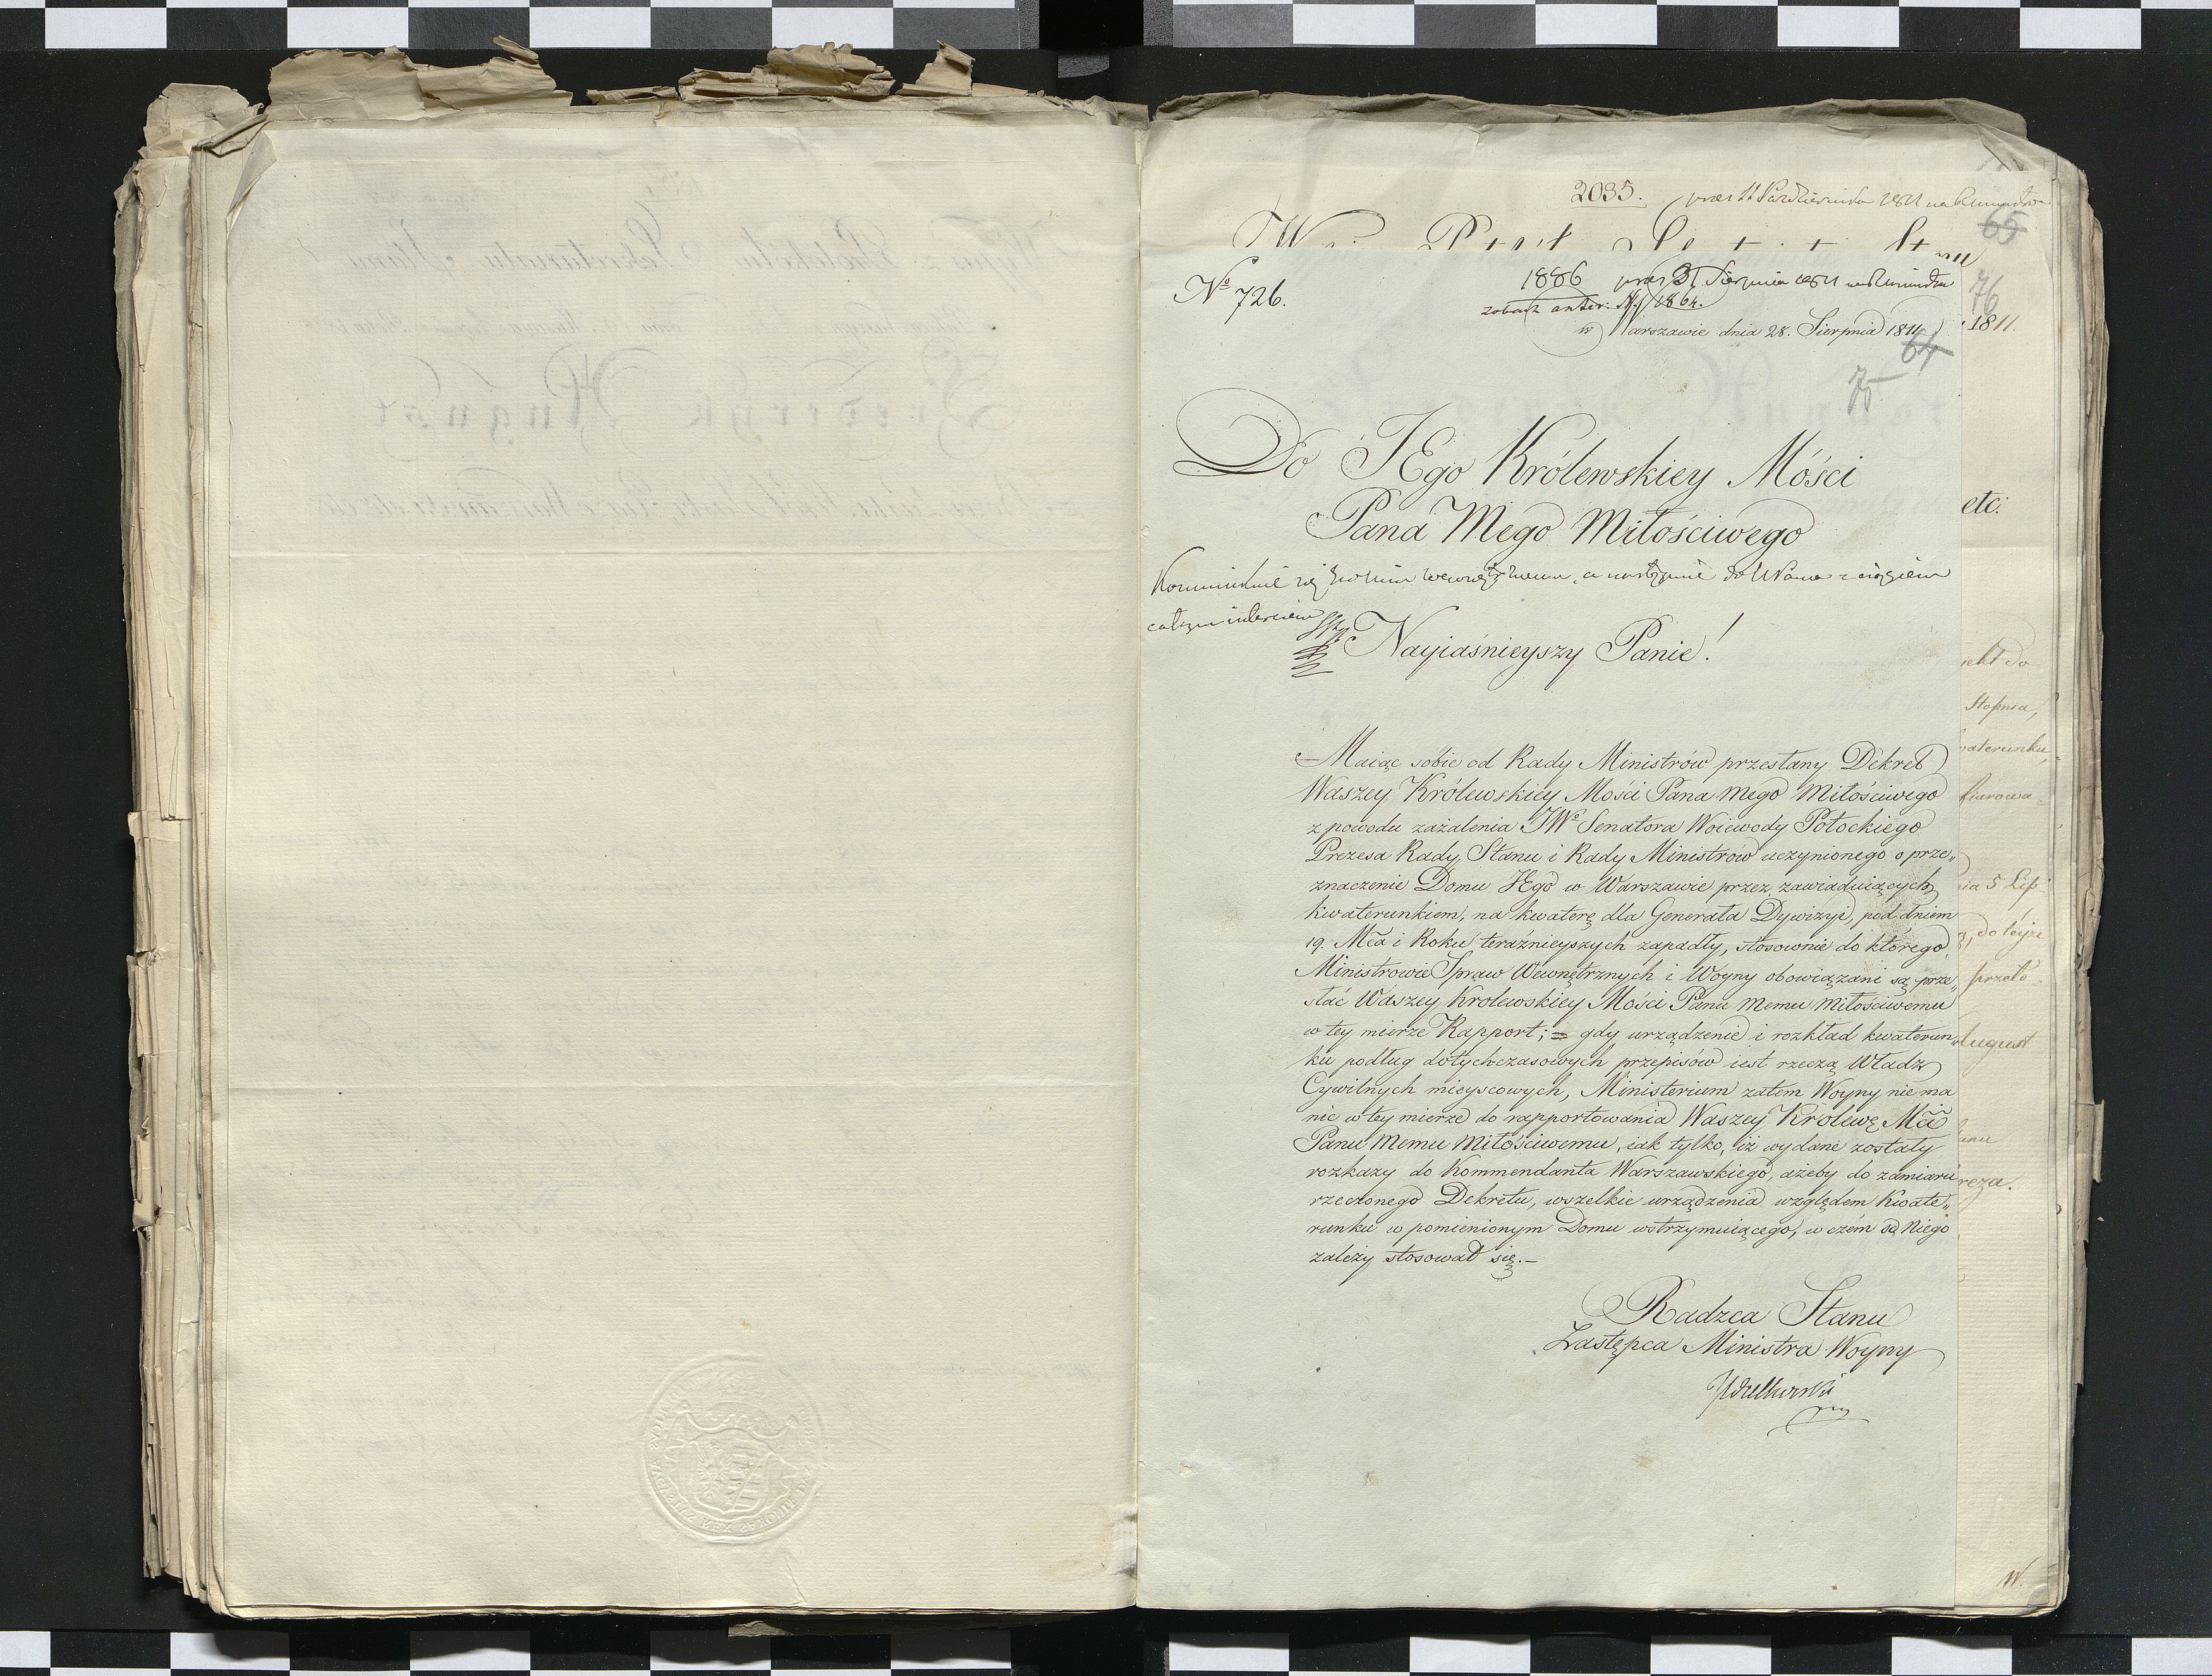 2035.
65
No 726.
1886 31 Sierpnia 1811
76
1864.
1811.
w Warszawie dnia 28. Sierpnia 1811
64
75
Do JEgo Królewskiey Mości
etc:
Pana Mego Miłościwego
Nayiaśnieyszy Panie!
Stopnia,
Maiąc sóbie od Rady Ministrów przesłany Dekret
Waszey Królewskiey Mości Pana mego Miłościwego
z powodu zażalenia JWo Senatora Woiewody Potockiego
Prezesa Rady Stanu i Rady Ministrów uczynionego o prze„
znaczenie Domu JEgo w Warszawie przez zawiaduiących
kwaterunkiem, na kwaterę dla Generała Dywizyi, pod dniem
19. Mca i Roku teraźnieyszych zapadły, stosownie do którego,
Ministrowie Spraw Wewnętrznych i Woyny obowiązani są prze„
słać Waszey Krolewskiey Mości Panu Memu Miłościwemu
w tey mierze Rapport; = gdy urządzenie i rozkład kwaterun„
ku podług dotychczasowych przepisów iest rzeczą Władz
Cywilnych mieyscowych, Ministerium zatem Woyny nie ma
nic w tey mierze do rapportowania Waszey Królews Mci
Panu Memu Miłościwemu, iak tylko, iż wydane zostały
rozkazy do Kommendanta Warszawskiego, ażeby do zamiaru
rzeczonego Dekretu, wszelkie urządzenia względem Kwate„
runku w pomienionym Domu wstrzymuiącego, w czém od Niego
zależy stosował się.–
Radzca Stanu
Zastępca Ministra Woyny